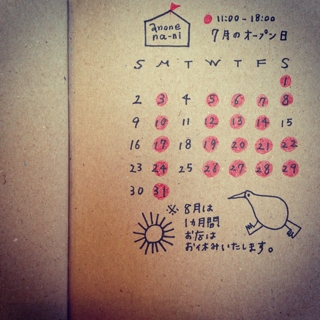 anone
na-ni
11:00-18:00
7月のオープン日
S M T W T F S
1
2 3 4 5 6 7 8
9 10 11 12 13 14 15
16 17 18 19 20 21 22
23 24 25 26 27 28 29
30 31
※ 8月は
1ヵ月間
お店は
お休みいたします。